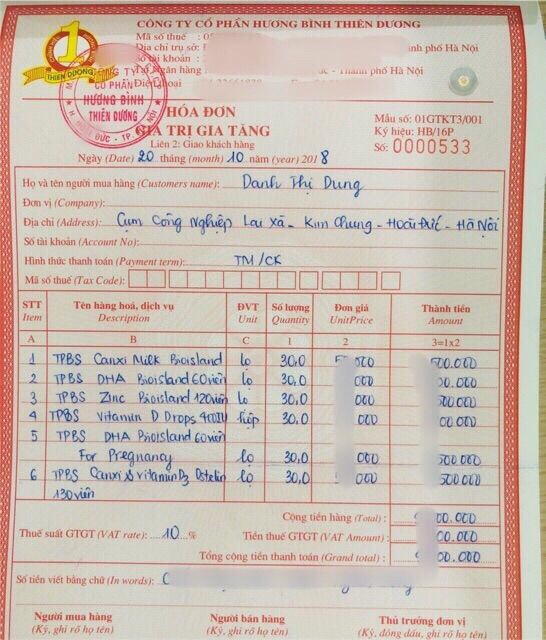 CÔNG TY CỔ PHẦN HƯƠNG BÌNH THIÊN DƯƠNG
Mã số thuế : 0
Địa chỉ trụ sở : phố Hà Nội
Số tài khoản :
Tại Ngân hàng Đức - Thành phố Hà Nội
Điện thoại
1
THIÊN DƯƠNG
CÔNG TY
CỔ PHẦN
HƯƠNG BÌNH
THIÊN DƯƠNG
HÓA ĐƠN
GIÁ TRỊ GIA TĂNG
Liên 2: Giao khách hàng
Ngày (Date) 20 tháng (month) 10 năm (year) 2018
Mẫu số: 01GTKT3/001
Ký hiệu: HB/16P
Số: 0000533
Họ và tên người mua hàng (Customers name): Danh Thị Dung
Đơn vị (Company):
Địa chỉ (Address): Cụm Công Nghiệp Lai Xá - Kim Chung - Hoài Đức - Hà Nội
Số tài khoản (Account No):
Hình thức thanh toán (Payment term): TM/CK
Mã số thuế (Tax Code):
STT Tên hàng hoá, dịch vụ ĐVT Số lượng Đơn giá Thành tiền
Item Description Unit Quantity UnitPrice Amount
A B C 1 2 3=1x2
1 TPBS Canxi Milk Bioisland lọ 30,0 000 500.000
2 TPBS DHA Bioisland 60viên lọ 30,0 000 00.000
3 TPBS Zinc Bioisland 120viên lọ 30,0 000 500.000
4 TPBS Vitamin D Drops 400IU hộp 30,0 000 00.000
5 TPBS DHA Bioisland 60viên
For Pregnancy lọ 30,0 000 500.000
6 TPBS Canxi & vitamin D3 Ostelin lọ 30,0 000 500.000
130 viên
Cộng tiền hàng (Total): 00.000
Thuế suất GTGT (VAT rate): 10 % Tiền thuế GTGT (VAT Amount): 00.000
Tổng cộng tiền thanh toán (Grand total): 00.000
Số tiền viết bằng chữ (In words): C
Người mua hàng Người bán hàng Thủ trưởng đơn vị
(Ký, ghi rõ họ tên) (Ký, ghi rõ họ tên) (Ký, đóng dấu, ghi rõ họ tên)